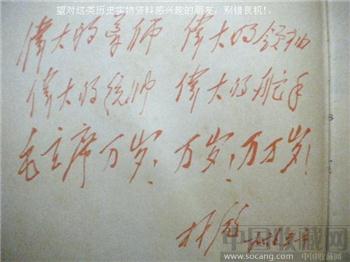 望对这类历史实物资料感兴趣的朋友，别错良机！.
伟大的导师 伟大的领袖
伟大的统帅 伟大的舵手
毛主席万岁！万岁！万万岁！
林彪
中国收藏网
www.socang.com